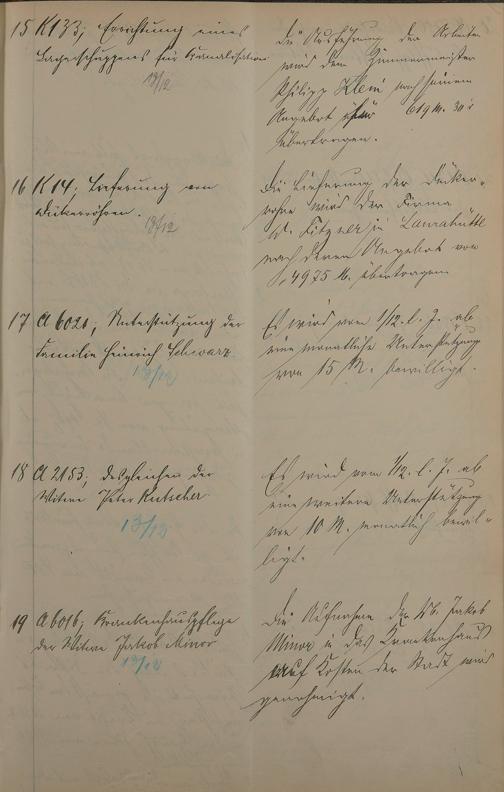 15 K 133; Errichtung eines
Lagerschuppens für Kanalisation
13/12
Die Ausführung der Arbeiten
wird dem Zimmermeister
Philipp Klein nach seinem
Angebot für 619 M. 30
übertragen.
16 K 14; Lieferung von
Dükerröhren.
13/12
Die Lieferung der Düker-
rohre wird der Firma
W. Fitzner in Laurahütte
nach deren Angebot von
4975 M. übertragen
17 A 6020, Unterstützung der
Familie Heinrich Schwarz
13/12
Es wird vom 1/12. l. J. ab
eine monatliche Unterstützung
von 15 M. bewilligt.
18 A 2153; desgleichen der
Witwe Peter Kutscher
13/12
Es wird vom 1/12. l. J. ab
eine weitere Unterstützung
von 10 M. monatlich bewil-
ligt.
19 A 6016; Krankenhauspflege
der Witwe Jakob Minor
13/12
Die Aufnahme der Wb. Jakob
Minor in das Krankenhaus
auf Kosten der Stadt wird
genehmigt.